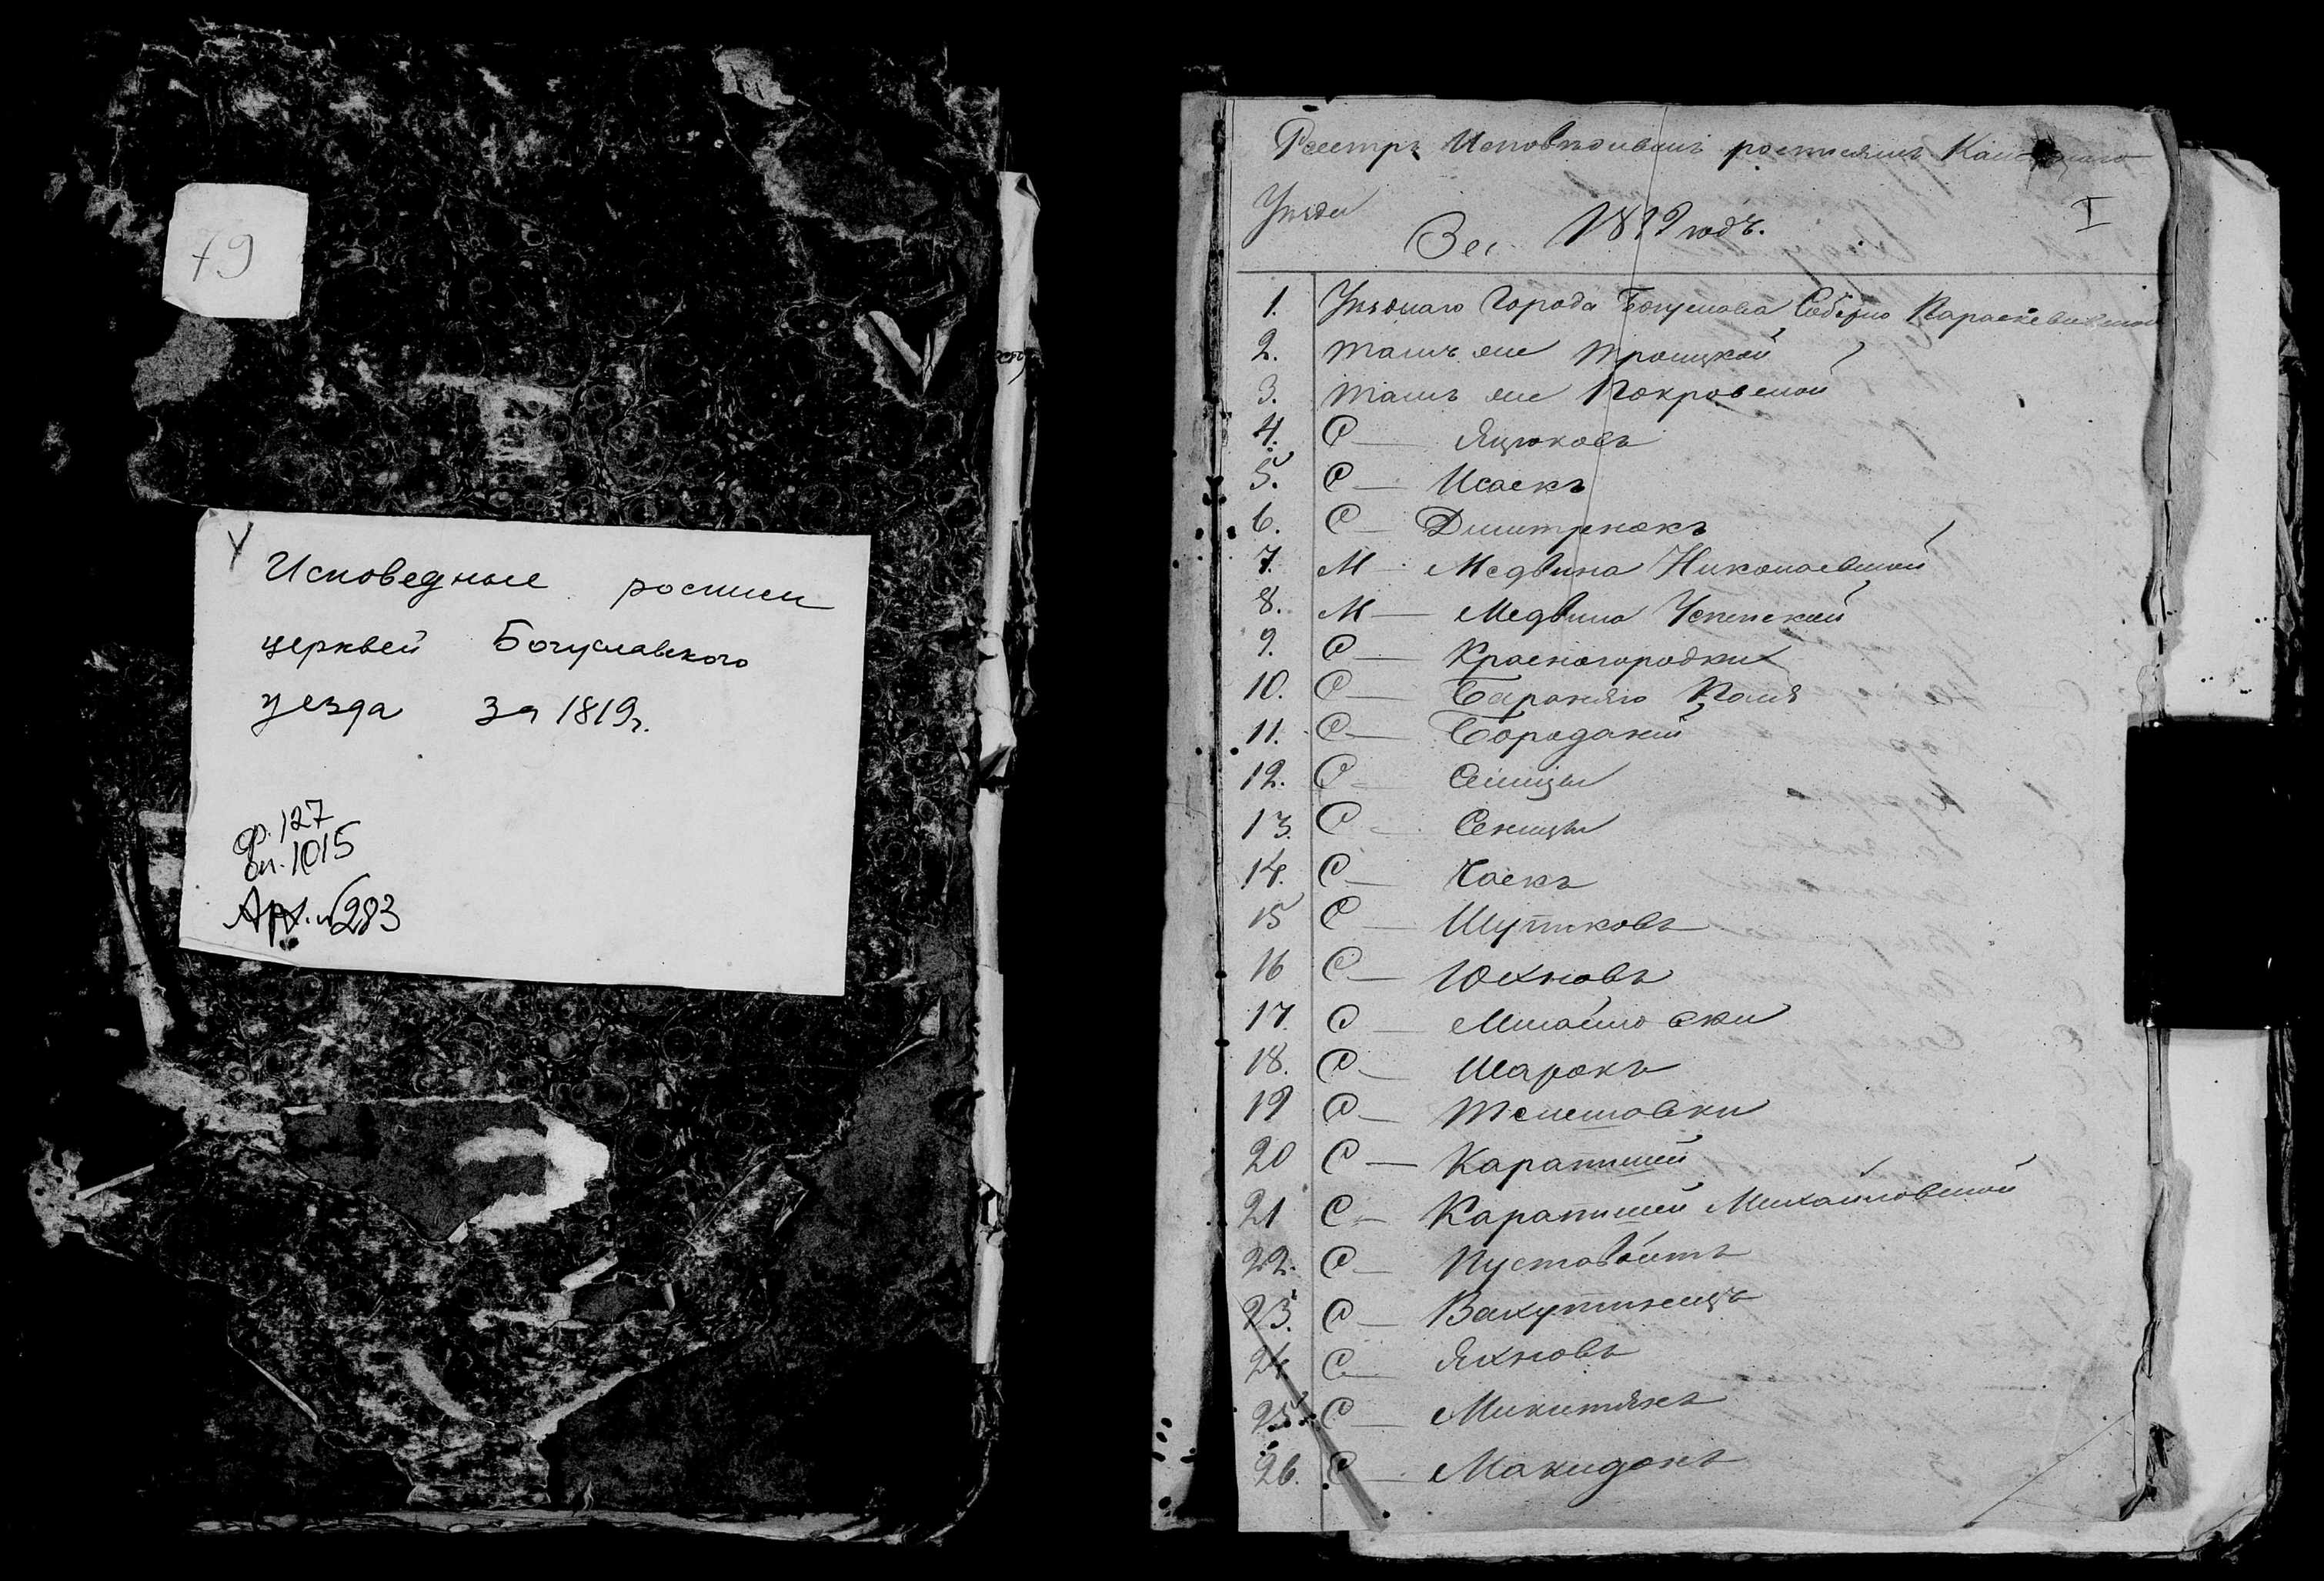 79
Исповедные росписи
церквей Богуславского
уезда за 1819г.
Ф. 127
оп. 1015
Арх. № 283
Реестръ Исповѣднымъ росписямъ
Уѣзда
За 1819 годъ.
I
1. Уѣзднаго Города Богуслава Соборно
2. тамъ же Троицкой
3. тамъ же Покровской
4. С — Яцюковъ
5. С — Исаекъ
6. С — Дмитренокъ
7. М — Медвина Николаевской
8. М — Медвина Успенской
9. С — Красногородки
10. С — Бараняго Поля
11. С — Бородакій
12. С — Синицы
13. С — Сеницы
14. С — Чаекъ
15 С — Шупиковъ
16 С — Юхновъ
17. С — Михайловки
18. С — Шарокъ
19 С — Телешовки
20 С — Карапишей
21 С — Карапишей Михайловской
22. С — Пустовойтъ
23. С — Вахутинецъ
24 С — Яхновъ
25. С — Микитянъ
26. С — Макидонъ